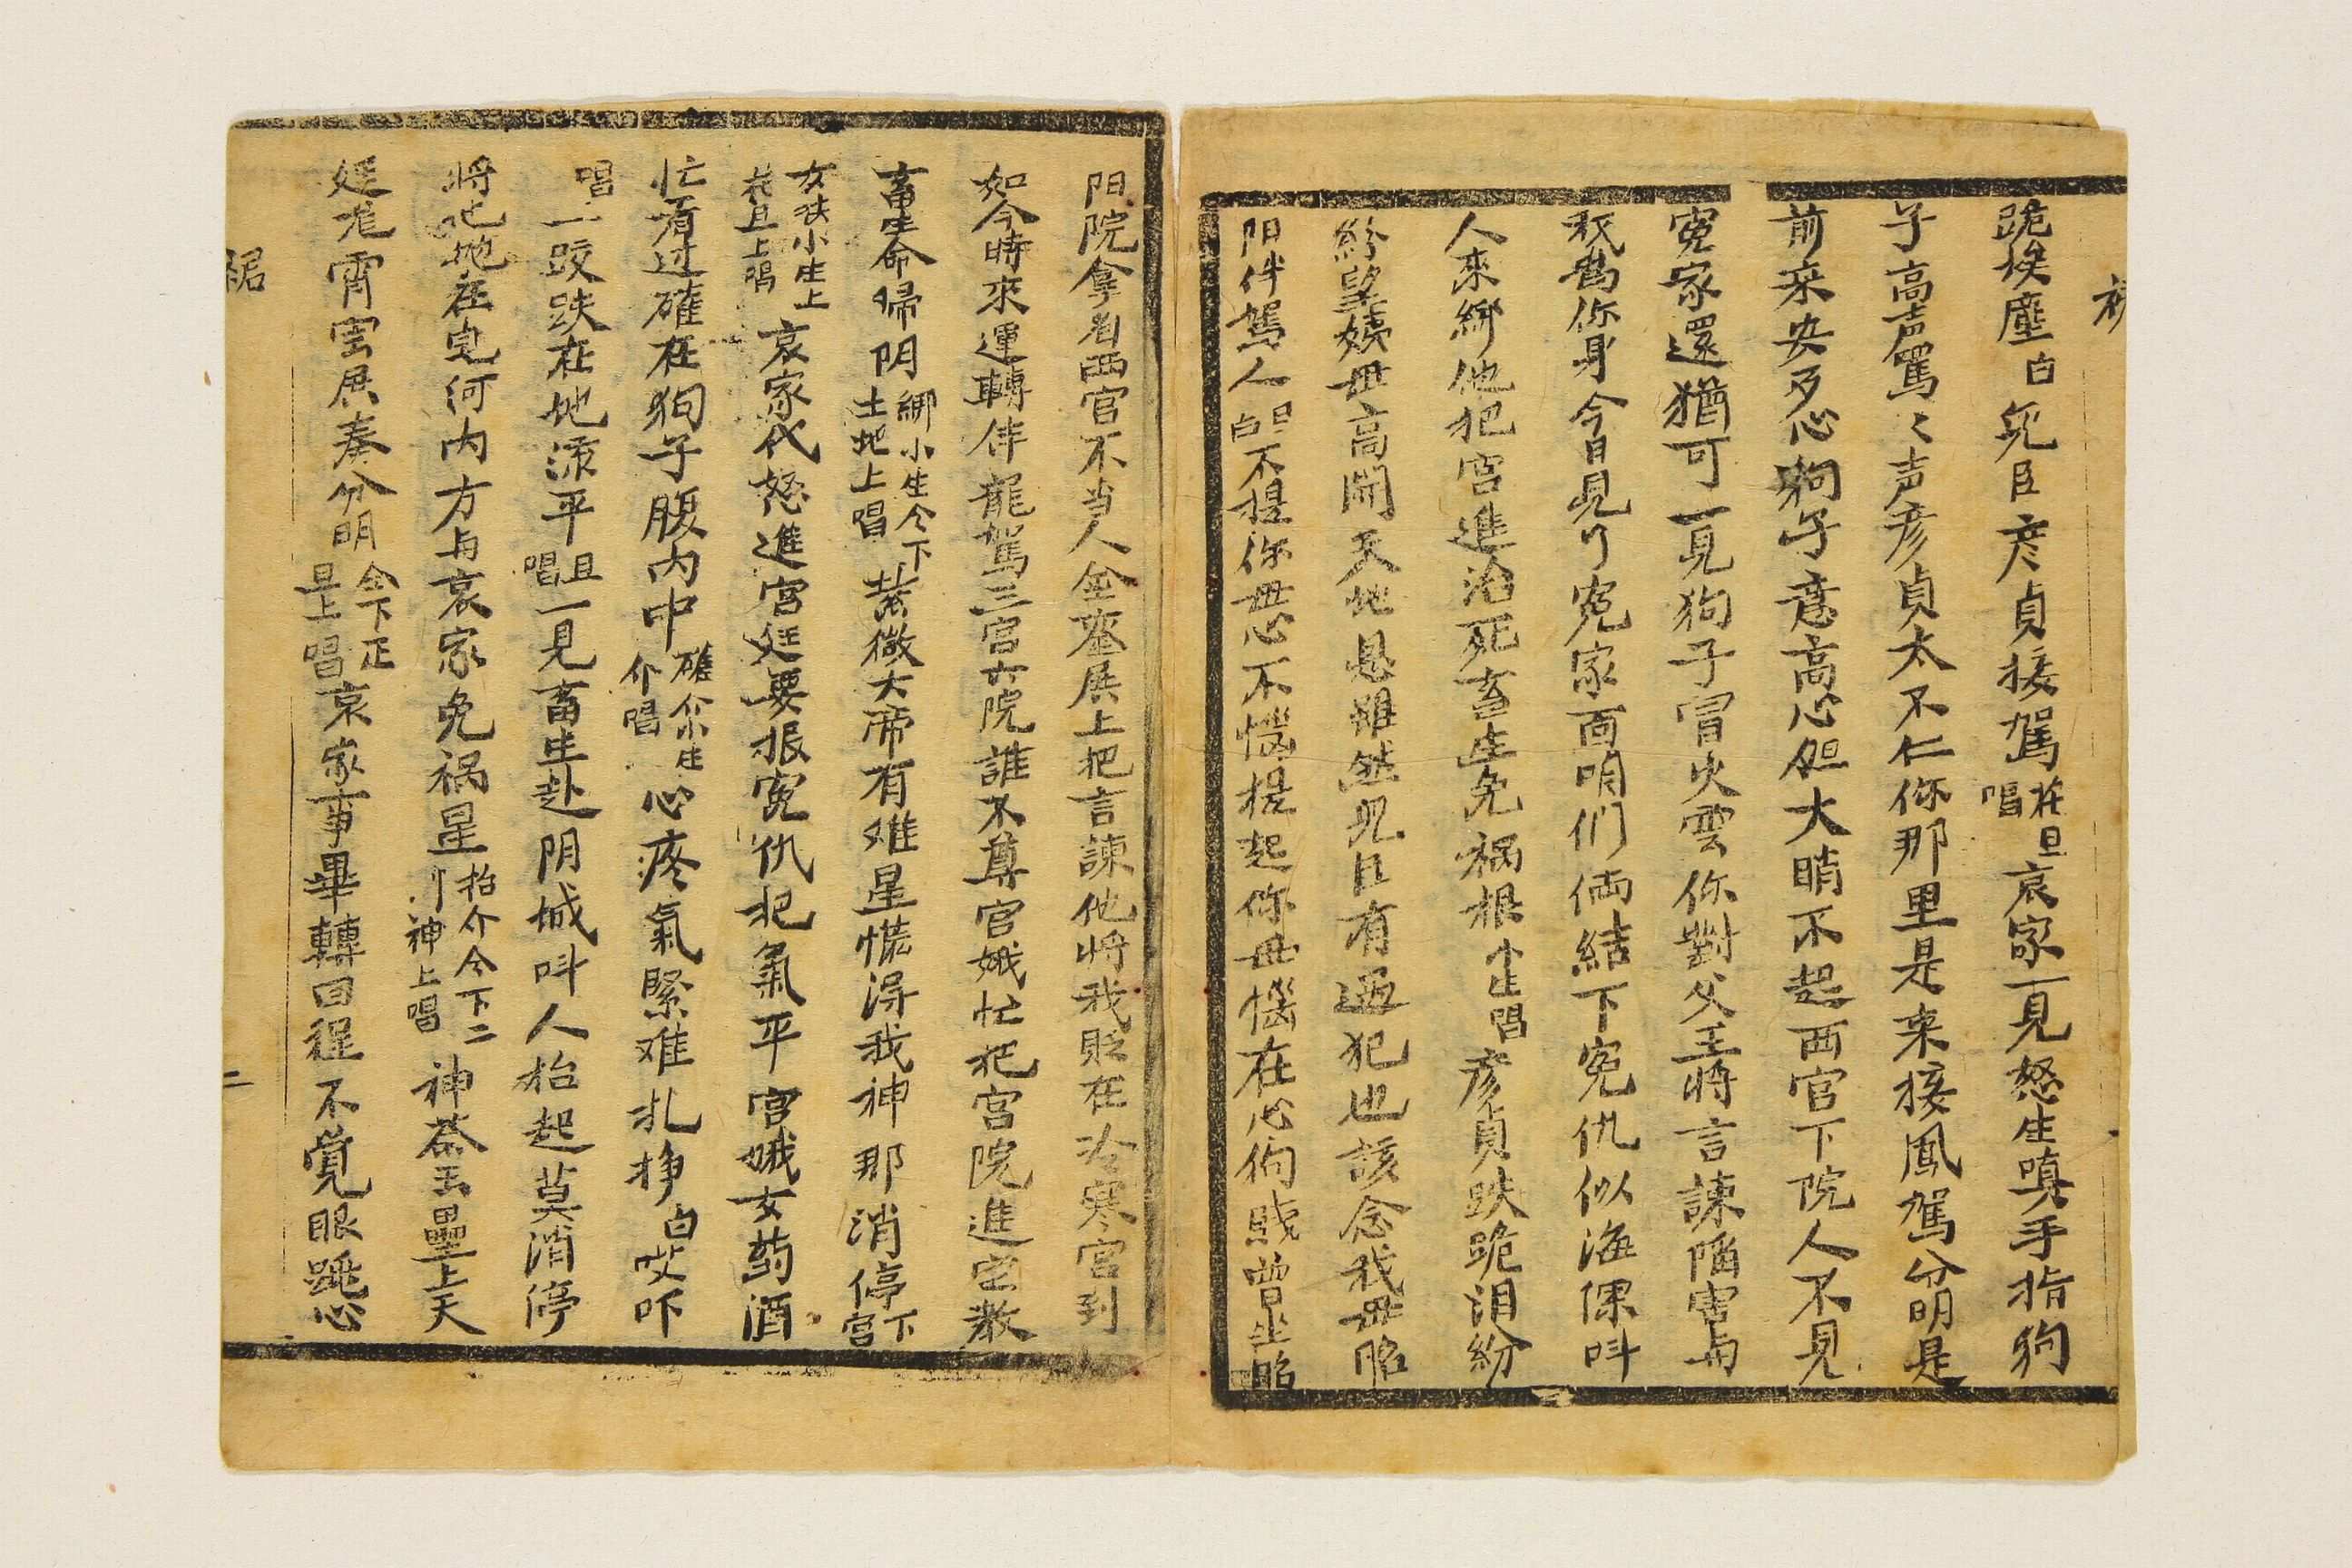 跪埃塵白兒臣彦貞接駕在旦唱哀家一見怒生嗔手指狗
子高声罵〻声彦貞太不仁你那里是来接鳳駕分明是
前来安歹心狗子意高心胆大睄不起西宫下院人不見
冤家還猶可一見狗子冒火雲你對父王將言諫陥害与
我為你身今日見了冤家面咱们俩結下冤仇似海深叫
人來綁他把宫進治死畜生免祸根小生唱彦貞跌跪泪紛
紛望姨毋高開天地恩雖然兒臣有過犯也該念我毋昭
阳伴駕人旦白不提你毋心不惱提起你毋惱在心狗賤曽坐昭
阳院拿着西宫不当人金鑾展上把言諫他將我貶在冷寒宫到
如今時來運轉伴龍駕三宫六院誰不尊宫娥忙把宫院進它教
畜生命帰阴綁小生仝下土地上唱紫微大帝有难星慌得我神那消停下宫
女扶小生上花旦上唱哀家代怒進宫廷要报冤仇把氣平宫娥女药酒
忙看过確在狗子腹内中確介小生介唱心疼氣緊难扎挣白哎吓
唱一跤跌在地流平旦唱一見畜生赴阴城叫人抬起莫消停
將他抛在皃河内方与哀家免祸星抬介仝下二了神上唱神茶玉壘上天
廷灵霄宝展奏分明仝下正旦上唱哀家事畢轉囬程不覚眼跳心
二